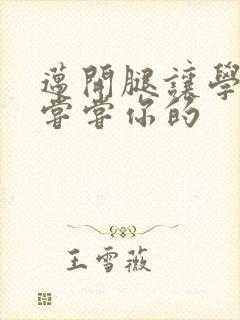 邁開腿讓學
嘗嘗你的
王雪薇